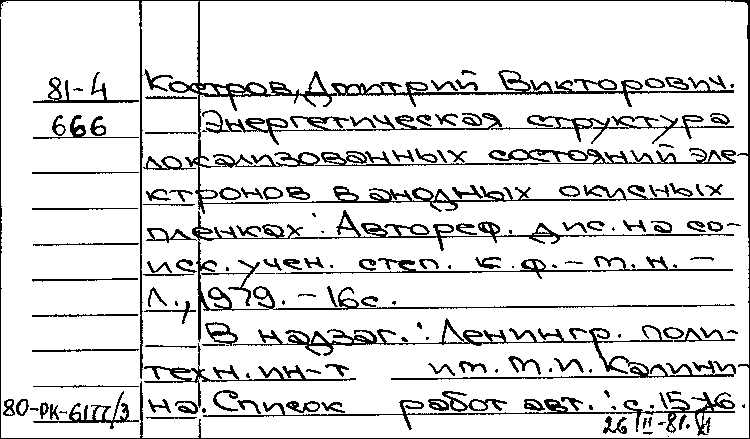 81-4 Костров, Дмитрий Викторович.
666 Энергетическая структура
локализованных состояний эле-
ктронов в анодных окисных
пленках: Автореф. дис. на со-
иск. учен. степ. к. ф.-м. н. -
Л., 1979. - 16 с.
В надзаг.: Ленингр. поли-
техн. ин-т им. М.И. Калини-
80-РК-6177/3 на. Список работ авт.: с. 15-16.
26 II-81.